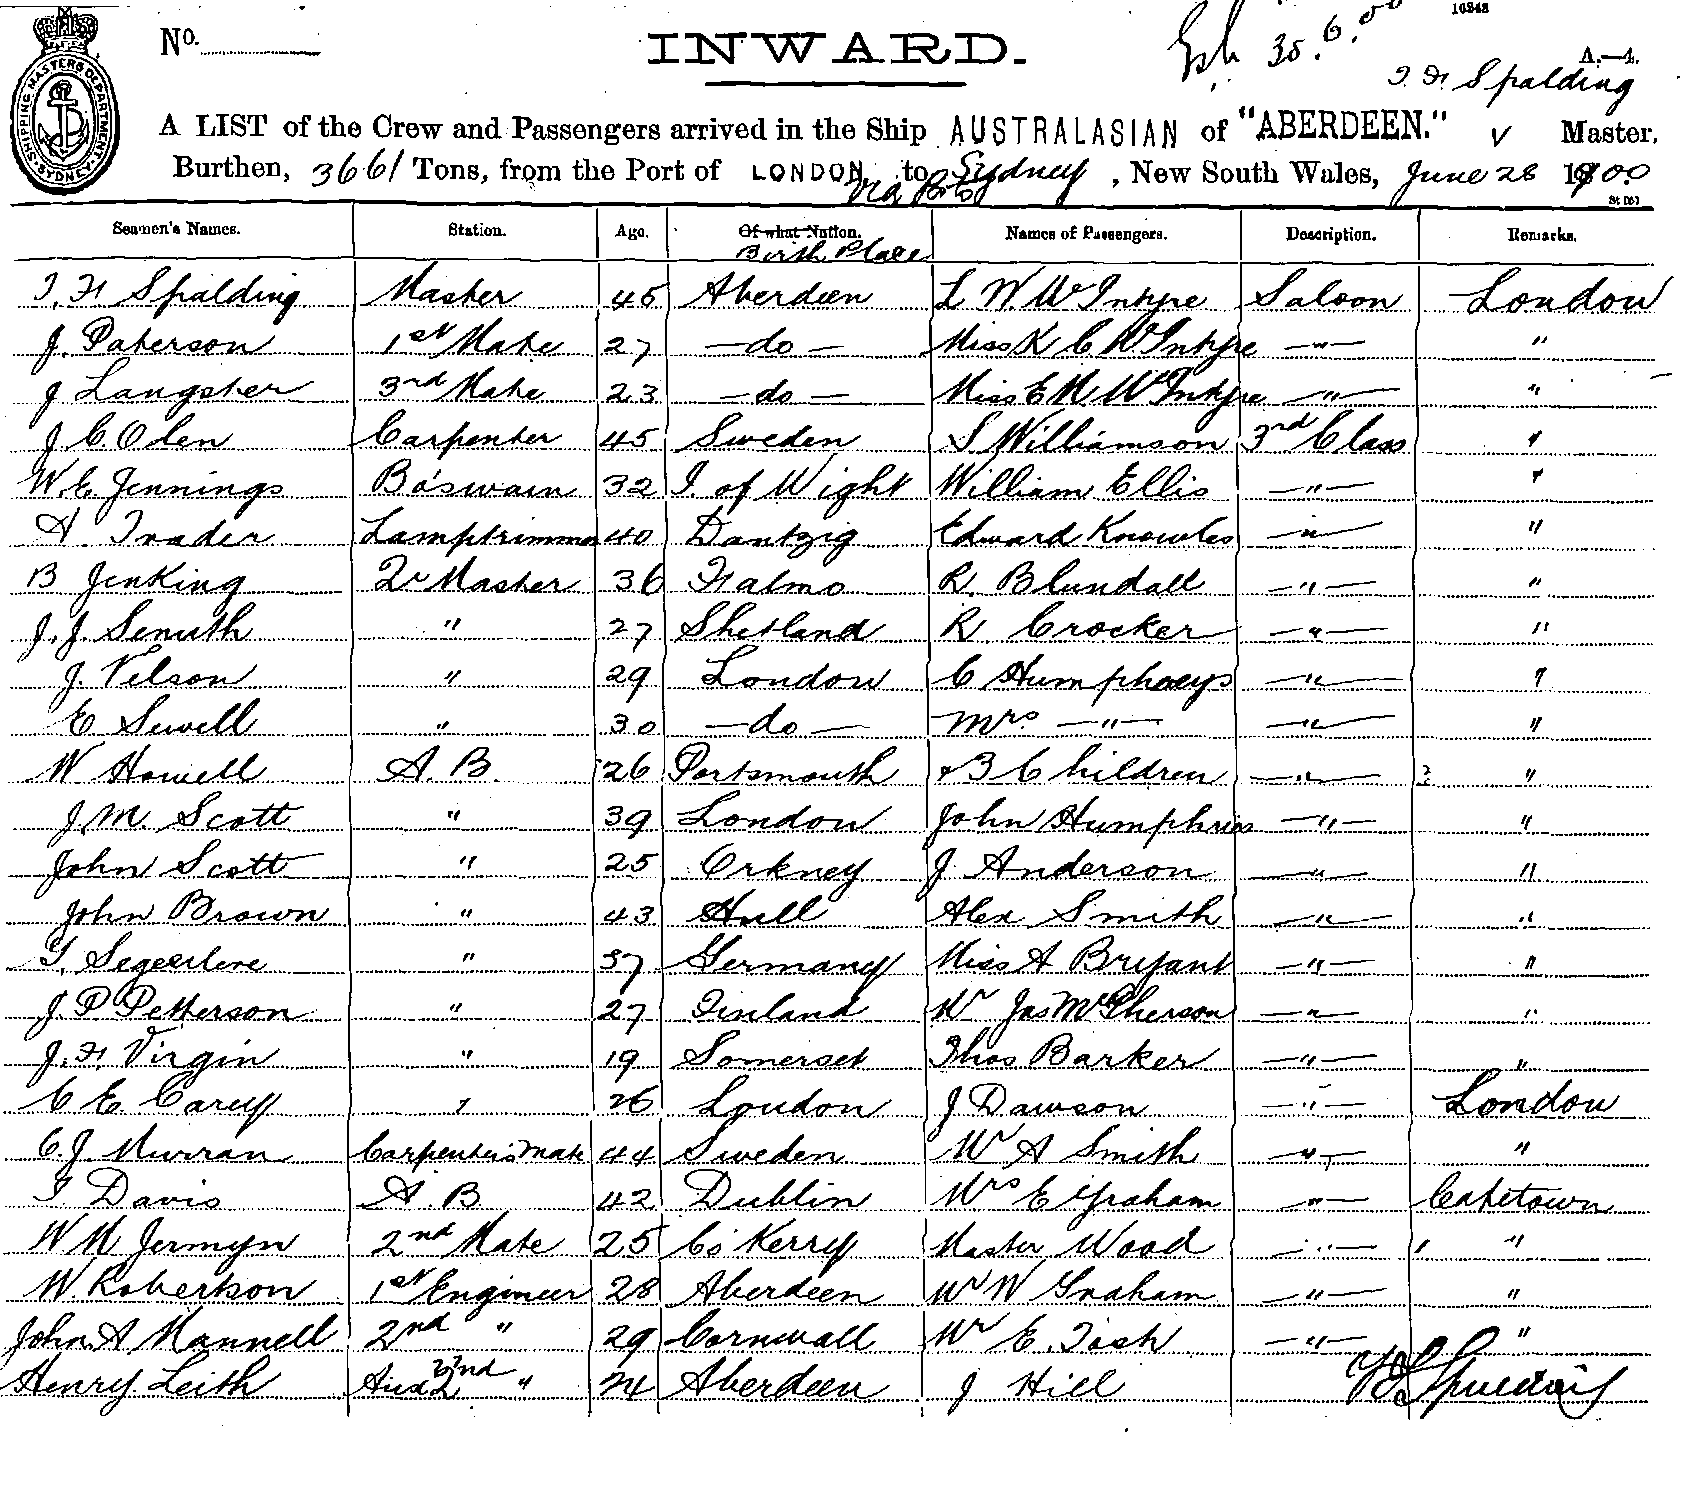 16848
No.
INWARD.
30.6.00
A.—4.
J. H. Spalding
SHIPPING MASTERS DEPARTMENT SYDNEY
A LIST of the Crew and Passengers arrived in the Ship AUSTRALASIAN of "ABERDEEN." Master,
Burthen, 3661 Tons, from the Port of LONDON to Sydney, New South Wales, June 28 1900
via
Seamen's Names. Station. Age. Of what Nation. Names of Passengers. Description. Remarks.
Birth Place
J. H Spalding Master 45 Aberdeen L W. McIntyre Saloon London
J. Paterson 1st Mate 27 —do— Miss K C McIntyre —"— "
J Langster 3rd Mate 23 —do— Miss E M McIntyre —"— "
J. C. Olen Carpenter 45 Sweden S Williamson 3rd Class "
W E Jennings Bo'swain 32 I. of Wight William Ellis —"— "
A. Trader Lamptrimmer 40 Dantzig Edward Knowles —"— "
B Jenking Qr Master 36 Falmo R. Blundall —"— "
J. J. Smith " 27 Shetland R. Crocker —"— "
J. Nelson " 29 London C Humphreys —"— "
E Sewell " 30 —do— Mrs —"— —"— "
W Howell A. B. 26 Portsmouth & 3 Children —"— "
J. M. Scott " 39 London John Humphries —"— "
John Scott " 25 Orkney J Anderson —"— "
John Brown " 43 Hull Alex Smith —"— "
" 37 Germany Miss A Bryant —"— "
J. P Petterson " 27 Finland Mr Jas McPherson —"— "
J. H. Virgin " 19 Somerset Thos Barker —"— "
C E Carey " 26 London J Dawson —"— London
C. J. Murran Carpenters Mate 44 Sweden Mr A Smith —"— "
T Davis A. B 42 Dublin Mrs E Graham —"— Capetown
W M Jermyn 2nd Mate 25 Co Kerry Master Wood —"— "
W. Robertson 1st Engineer 28 Aberdeen Mr W Graham —"— "
John. A Mannell 2nd " 29 Cornwall Mr E. Tosh —"— "
Henry Leith 2nd " 24 Aberdeen J Hill